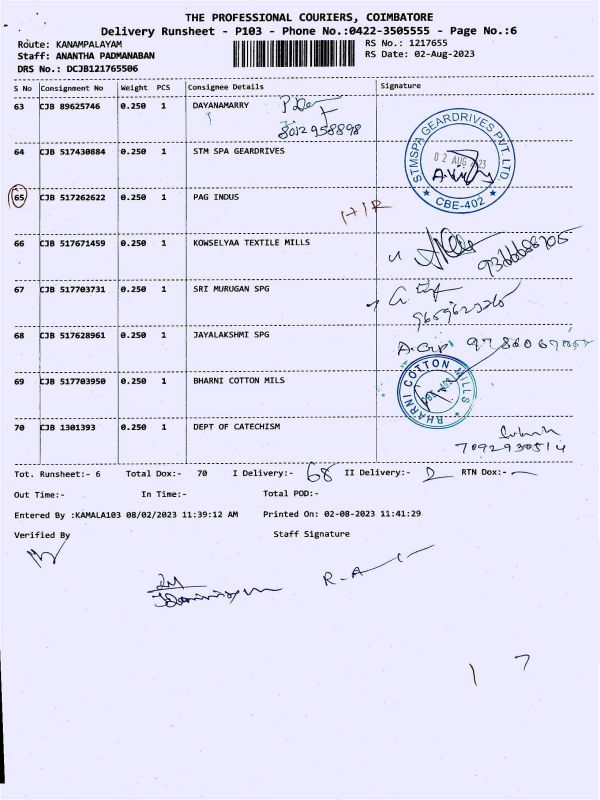 THE PROFESSIONAL COURIERS, COIMBATORE
Delivery Runsheet - P103 - Phone No.:0422-3505555 - Page No.:6
Route: KANAMPALAYAM RS No.: 1217655
Staff: ANANTHA PADMANABAN RS Date: 02-Aug-2023
DRS No.: DCJB121765506
S No Consignment No Weight PCS Consignee Details Signature
63 CJB 89625746 0.250 1 DAYANAMARRY
8012958898
64 CJB 517430884 0.250 1 STM SPA GEARDRIVES
STMSPA GEARDRIVES PVT. LTD
02 AUG 23
CBE-402
65 CJB 517262622 0.250 1 PAG INDUS
66 CJB 517671459 0.250 1 KOWSELYAA TEXTILE MILLS
67 CJB 517703731 0.250 1 SRI MURUGAN SPG
68 CJB 517628961 0.250 1 JAYALAKSHMI SPG
69 CJB 517703950 0.250 1 BHARNI COTTON MILS
BHARNI COTTON MILLS
70 CJB 1301393 0.250 1 DEPT OF CATECHISM
7092930514
Tot. Runsheet:- 6 Total Dox:- 70 I Delivery:- 68 II Delivery:- 2 RTN Dox:-
Out Time:- In Time:- Total POD:-
Entered By :KAMALA103 08/02/2023 11:39:12 AM Printed On: 02-08-2023 11:41:29
Verified By Staff Signature